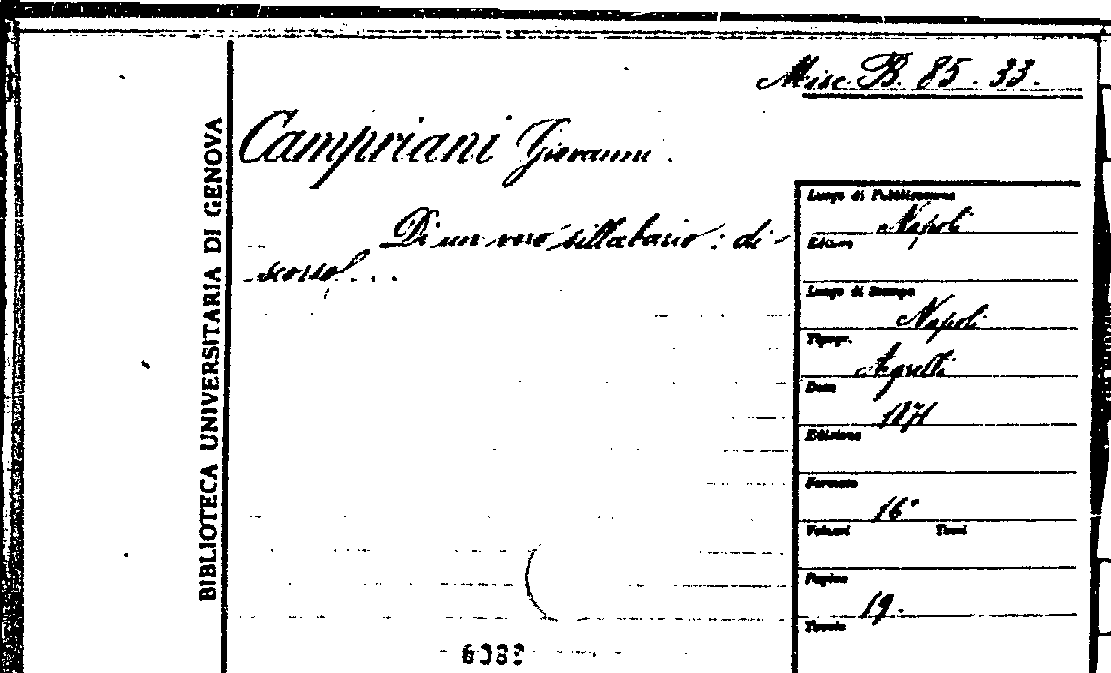 Misc. B. 85. 33.
BIBLIOTECA UNIVERSITARIA DI GENOVA
Campriani Giovanni.
Di un vero sillabario: di-
scorso ...
Luogo di Pubblicazione
Napoli
Editore
Luogo di Stampa
Napoli
Tipogr.
Agrelli
Data
1871
Edizione
Formato
16°
Volumi Tomi
Pagine
19.
Tavole